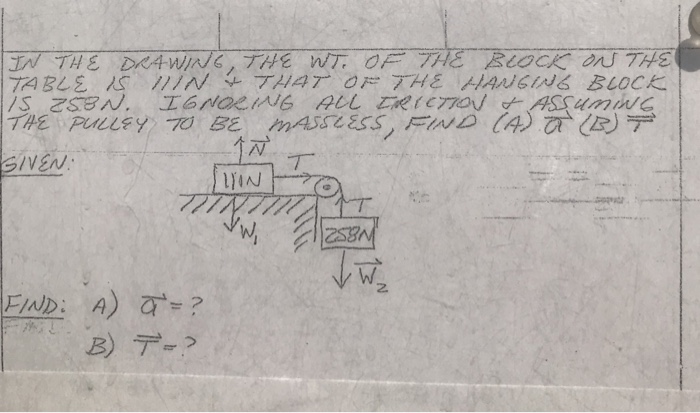 IN THE DRAWING, THE WT. OF THE BLOCK ON THE
TABLE IS 111N & THAT OF THE HANGING BLOCK
IS 258N. IGNORING ALL FRICTION & ASSUMING
THE PULLEY TO BE MASSLESS, FIND (A) a⃗ (B) T⃗
GIVEN:
N⃗
T
111N
T
W₁
258N
W⃗₂
FIND: A) a⃗ = ?
B) T⃗ = ?